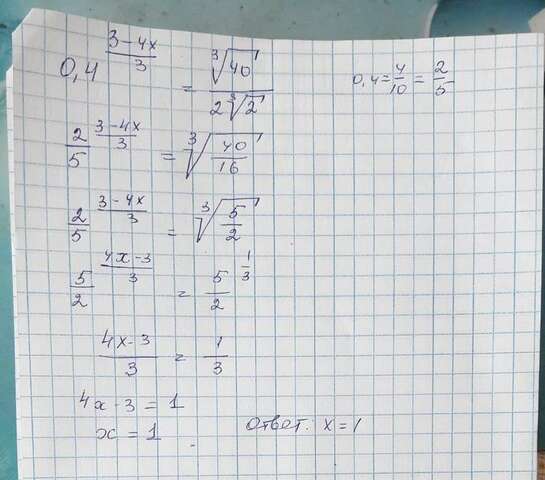 0,4^((3-4x)/3) = ∛40 / (2∛2)
0,4 = 4/10 = 2/5
2/5^((3-4x)/3) = ∛(40/16)
2/5^((3-4x)/3) = ∛(5/2)
5/2^((4x-3)/3) = 5/2^(1/3)
(4x-3)/3 = 1/3
4x-3=1
x=1
Ответ: x=1